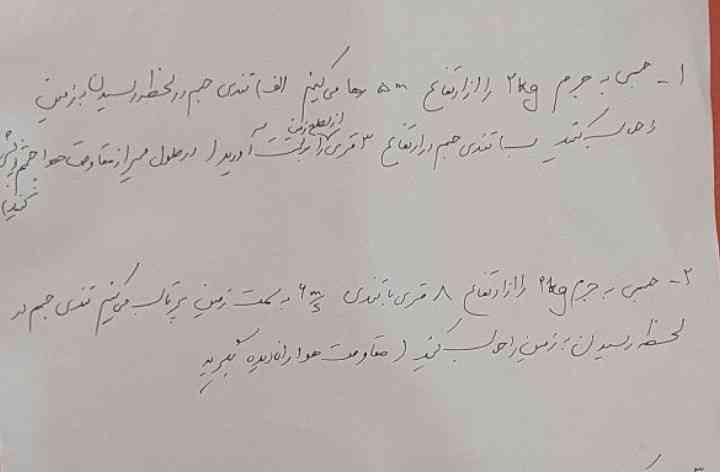 ۱- جسمی به جرم ۲kg را از ارتفاع ۵m رها می‌کنیم الف) تندی جسم در لحظه رسیدن به زمین
از سطح زمین
را حساب کنید ب) تندی جسم در ارتفاع ۳ متری را بدست آورید ( در طول مسیر از مقاومت هوا چشم پوشی
کنید)
۲- جسمی به جرم ۲kg را از ارتفاع ۸ متری با تندی ۶ m/s به سمت زمین پرتاب می‌کنیم تندی جسم در
لحظه رسیدن به زمین را حساب کنید ( مقاومت هوا را نادیده بگیرید